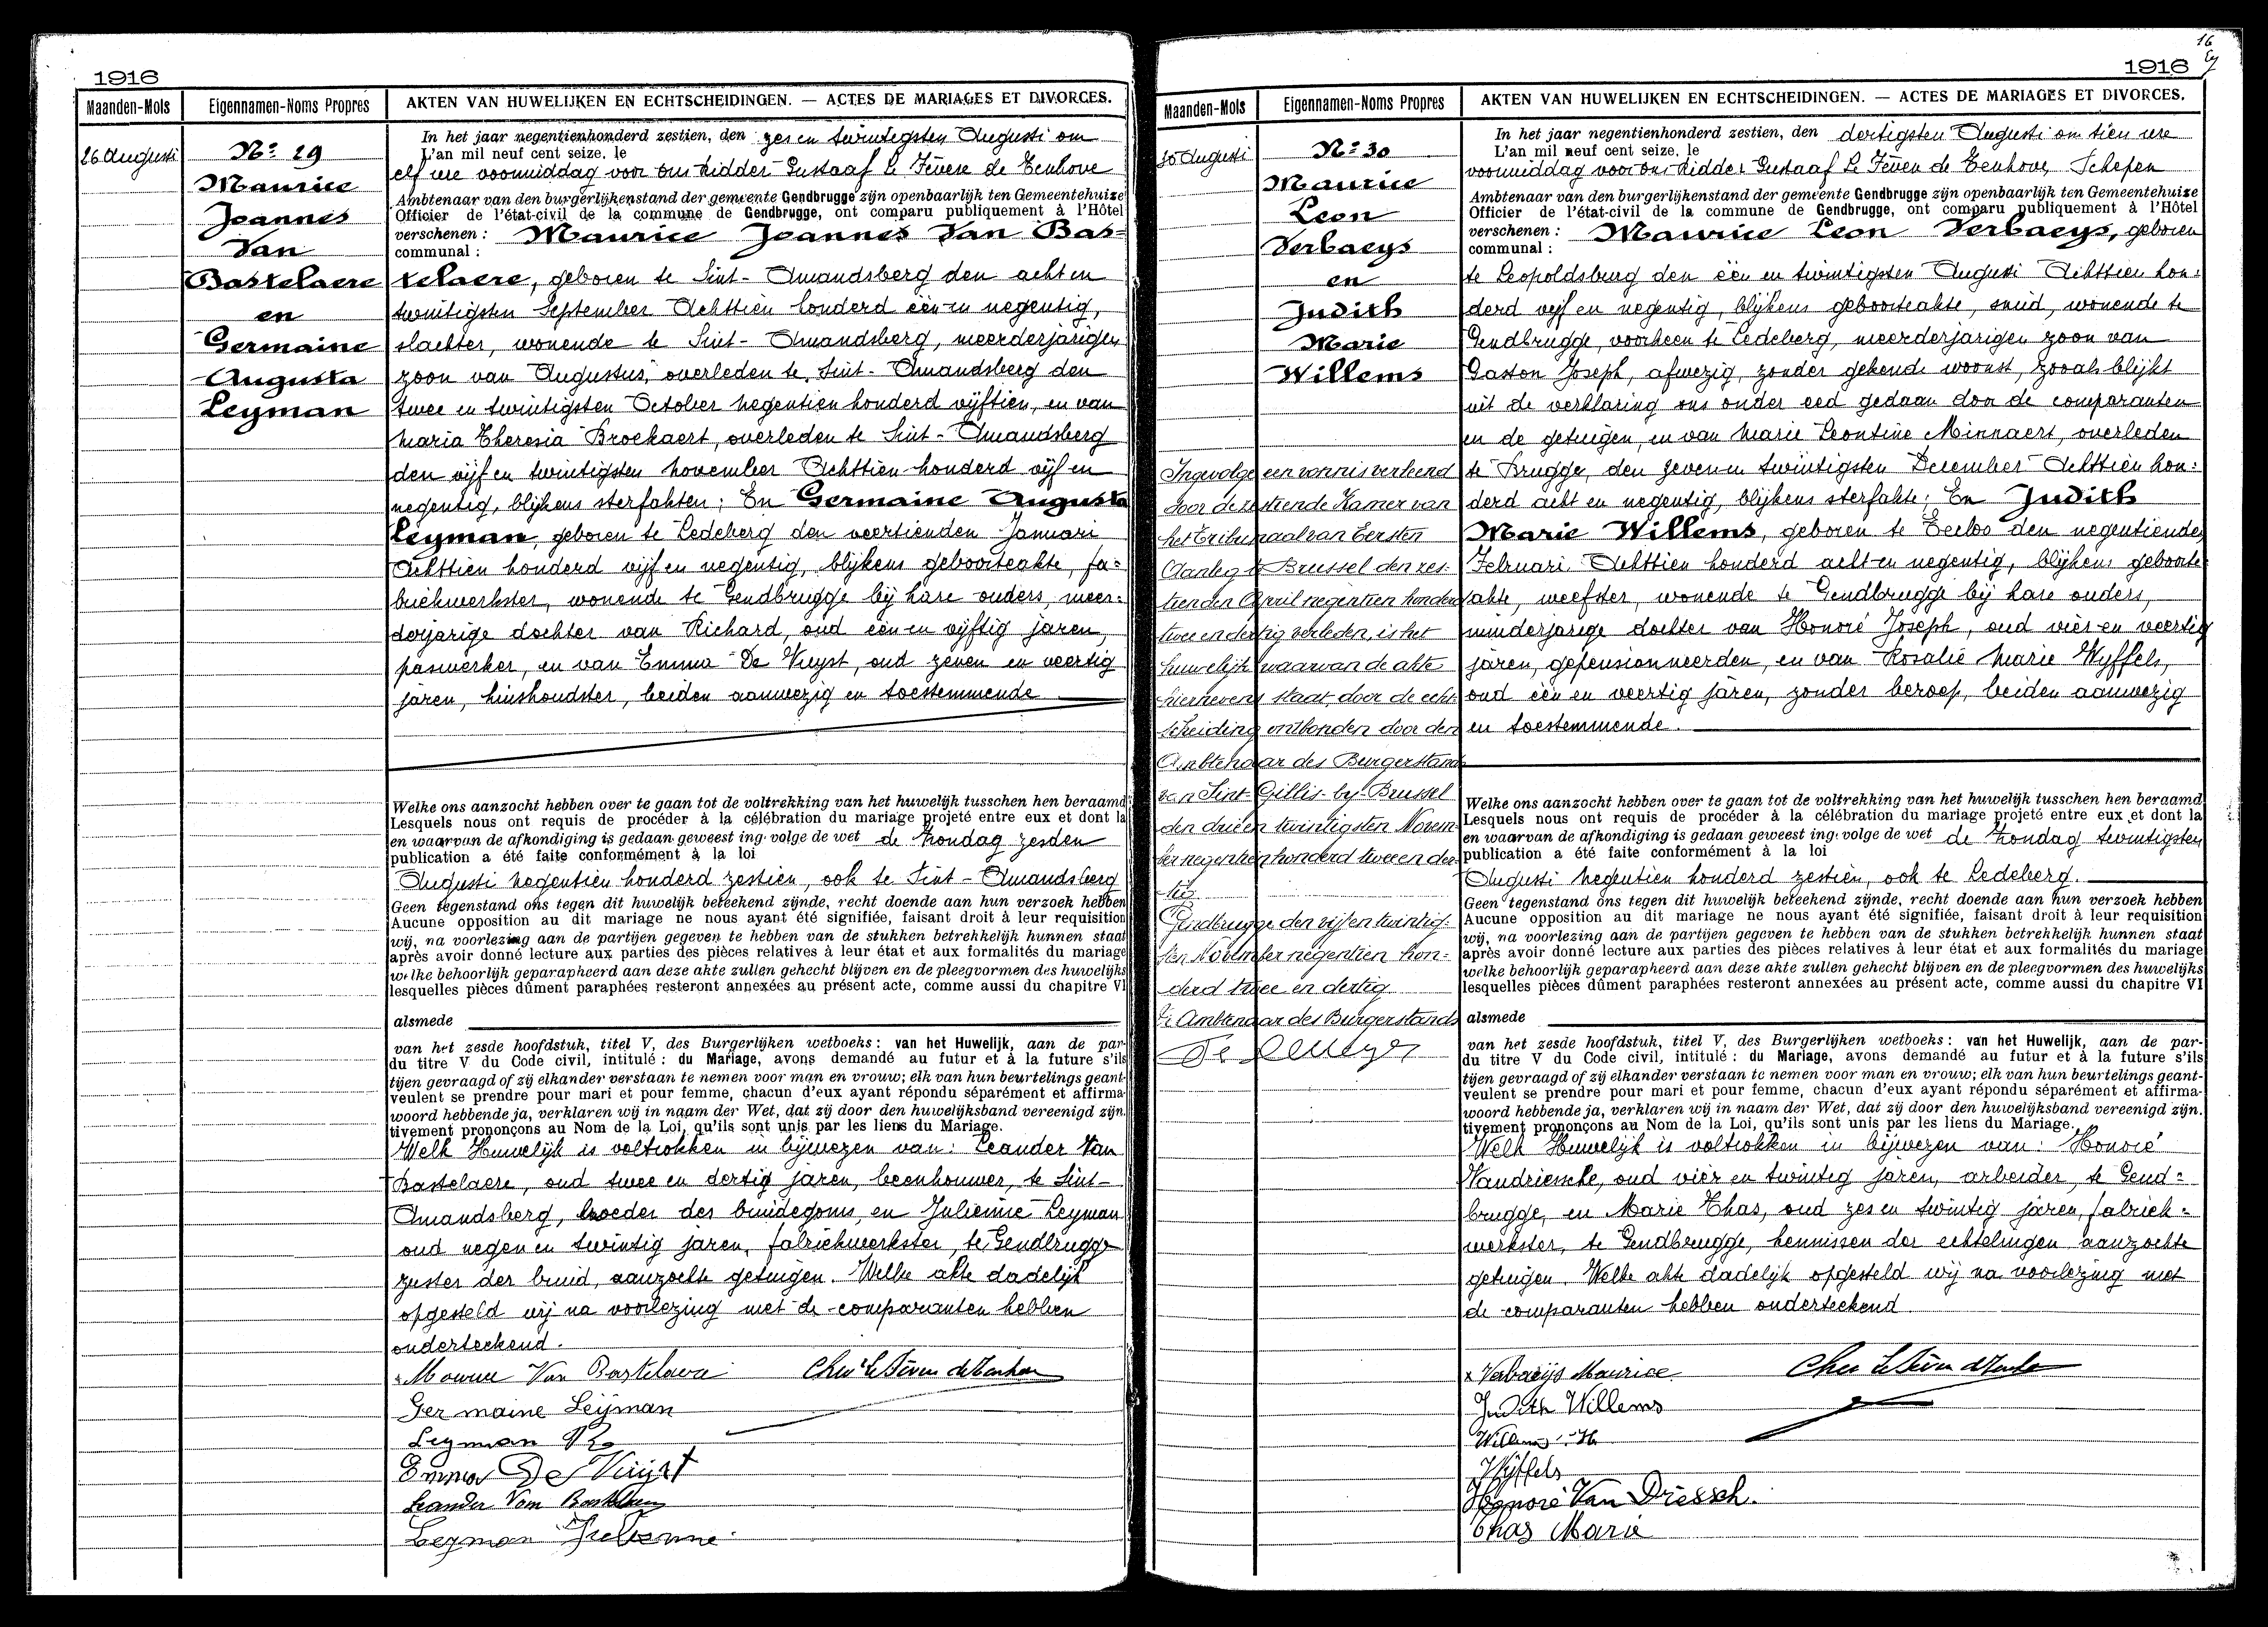 1916
Maanden-Mois
Eigennamen-Noms Propres
AKTEN VAN HUWELIJKEN EN ECHTSCHEIDINGEN. — ACTES DE MARIAGES ET DIVORCES.
26 Augusti
No 29
Maurice
Joannes
Van
Bastelaere
en
Germaine
Augusta
Leyman
In het jaar negentienhonderd zestien, den zes en twintigsten Augusti om
L'an mil neuf cent seize, le
elf ure voormiddag voor ons Ridder Gustaaf Le Fevere de Tenhove
Ambtenaar van den burgerlijkenstand der gemeente Gendbrugge zijn openbaarlijk ten Gemeentehuize
Officier de l'état-civil de la commune de Gendbrugge, ont comparu publiquement à l'Hôtel
verschenen : Maurice Joannes Van Bas=
communal :
telaere, geboren te Sint-Amandsberg den acht en
twintigsten September Achttien honderd één en negentig,
slachter, wonende te Sint-Amandsberg, meerderjarigen
zoon van Augustus, overleden te Sint-Amandsberg den
twee en twintigsten October negentien honderd vijftien, en van
Maria Theresia Broekaert, overleden te Sint-Amandsberg
den vijf en twintigsten november Achttien honderd vijf en
negentig, blijkens sterfakten; En Germaine Augusta
Leyman, geboren te Ledeberg den veertienden Januari
Achttien honderd vijf en negentig, blijkens geboorteakte, fa=
briekwerkster, wonende te Gendbrugge bij hare ouders, meer=
derjarige dochter van Richard, oud één en vijftig jaren,
paswerker, en van Emma De Vuyst, oud zeven en veertig
jaren, huishoudster, beiden aanwezig en toestemmende
Welke ons aanzocht hebben over te gaan tot de voltrekking van het huwelijk tusschen hen beraamd
Lesquels nous ont requis de procéder à la célébration du mariage projeté entre eux et dont la
en waarvan de afkondiging is gedaan geweest ing. volge de wet de Zondag zesden
publication a été faite conformément à la loi
Augusti negentien honderd zestien, ook te Sint-Amandsberg
Geen tegenstand ons tegen dit huwelijk beteekend zijnde, recht doende aan hun verzoek hebben
Aucune opposition au dit mariage ne nous ayant été signifiée, faisant droit à leur requisition
wij, na voorlezing aan de partijen gegeven te hebben van de stukken betrekkelijk hunnen staat
après avoir donné lecture aux parties des pièces relatives à leur état et aux formalités du mariage
welke behoorlijk geparapheerd aan deze akte zullen gehecht blijven en de pleegvormen des huwelijks
lesquelles pièces dûment paraphées resteront annexées au présent acte, comme aussi du chapitre VI
alsmede
van het zesde hoofdstuk, titel V, des Burgerlijken wetboeks : van het Huwelijk, aan de par-
du titre V du Code civil, intitulé : du Mariage, avons demandé au futur et à la future s'ils
tijen gevraagd of zij elkander verstaan te nemen voor man en vrouw; elk van hun beurtelings geant-
veulent se prendre pour mari et pour femme, chacun d'eux ayant répondu séparément et affirma-
woord hebbende ja, verklaren wij in naam der Wet, dat zij door den huwelijksband vereenigd zijn.
tivement prononçons au Nom de la Loi, qu'ils sont unis par les liens du Mariage.
Welk Huwelijk is voltrokken in bijwezen van: Leander Van
Bastelaere, oud twee en dertig jaren, beenhouwer, te Sint-
Amandsberg, broeder des bruidegoms, en Julienne Leyman
oud negen en twintig jaren, fabriekwerkster, te Gendbrugge
zuster der bruid, aanzochte getuigen. Welke akte dadelijk
opgesteld wij na voorlezing met de comparanten hebben
onderteekend.
Maurice Van Bastelaere
Germaine Leijman
Leyman
Emma De Vuijst
Leander Van Bastelaere
Leyman Julienne
16
1916
Maanden-Mois
Eigennamen-Noms Propres
AKTEN VAN HUWELIJKEN EN ECHTSCHEIDINGEN. — ACTES DE MARIAGES ET DIVORCES.
30 Augusti
No 30
Maurice
Leon
Verbaeys
en
Judith
Marie
Willems
Ingevolge een vonnis verleend
door de zestiende Kamer van
het Tribunaal van Eersten
Aanleg te Brussel den zes-
tienden April negentien honderd
twee en dertig verleden, is het
huwelijk waarvan de akte
hiernevens staat, door de echt-
scheiding ontbonden door den
Ambtenaar des Burgerstands
van Sint-Gillis-by-Brussel
den drie en twintigsten Novem-
ber negentien honderd twee en der-
tig.
Gendbrugge den vijf en twintig-
sten November negentien hon-
derd twee en dertig.
De Ambtenaar des Burgerstands
In het jaar negentienhonderd zestien, den dertigsten Augusti om tien ure
L'an mil neuf cent seize, le
voormiddag voor ons Ridder Gustaaf Le Fever de Tenhove, Schepen
Ambtenaar van den burgerlijkenstand der gemeente Gendbrugge zijn openbaarlijk ten Gemeentehuize
Officier de l'état-civil de la commune de Gendbrugge, ont comparu publiquement à l'Hôtel
verschenen : Maurice Leon Verbaeys, geboren
communal :
te Leopoldsburg den één en twintigsten Augusti Achttien hon=
derd vijf en negentig, blijkens geboorteakte, smid, wonende te
Gendbrugge, voorheen te Ledeberg, meerderjarigen zoon van
Gaston Joseph, afwezig, zonder gekende woonst, zooals blijkt
uit de verklaring ons onder eed gedaan door de comparanten
en de getuigen, en van Marie Leontine Minnaert, overleden
te Brugge, den zeven en twintigsten December Achttien hon=
derd acht en negentig, blijkens sterfakte; En Judith
Marie Willems, geboren te Eecloo den negentienden
Februari Achttien honderd acht en negentig, blijkens geboorte
akte, weefster, wonende te Gendbrugge bij hare ouders,
minderjarige dochter van Honoré Joseph, oud vier en veertig
jaren, gepensionneerden, en van Rosalie Marie Wyffels,
oud één en veertig jaren, zonder beroep, beiden aanwezig
en toestemmende.
Welke ons aanzocht hebben over te gaan tot de voltrekking van het huwelijk tusschen hen beraamd
Lesquels nous ont requis de procéder à la célébration du mariage projeté entre eux et dont la
en waarvan de afkondiging is gedaan geweest ing. volge de wet de Zondag twintigsten
publication a été faite conformément à la loi
Augusti negentien honderd zestien, ook te Ledeberg.
Geen tegenstand ons tegen dit huwelijk beteekend zijnde, recht doende aan hun verzoek hebben
Aucune opposition au dit mariage ne nous ayant été signifiée, faisant droit à leur requisition
wij, na voorlezing aan de partijen gegeven te hebben van de stukken betrekkelijk hunnen staat
après avoir donné lecture aux parties des pièces relatives à leur état et aux formalités du mariage
welke behoorlijk geparapheerd aan deze akte zullen gehecht blijven en de pleegvormen des huwelijks
lesquelles pièces dûment paraphées resteront annexées au présent acte, comme aussi du chapitre VI
alsmede
van het zesde hoofdstuk, titel V, des Burgerlijken wetboeks : van het Huwelijk, aan de par-
du titre V du Code civil, intitulé : du Mariage, avons demandé au futur et à la future s'ils
tijen gevraagd of zij elkander verstaan te nemen voor man en vrouw; elk van hun beurtelings geant-
veulent se prendre pour mari et pour femme, chacun d'eux ayant répondu séparément et affirma-
woord hebbende ja, verklaren wij in naam der Wet, dat zij door den huwelijksband vereenigd zijn.
tivement prononçons au Nom de la Loi, qu'ils sont unis par les liens du Mariage.
Welk Huwelijk is voltrokken in bijwezen van: Honoré
Vandriessche, oud vier en twintig jaren, arbeider, te Gend=
brugge, en Marie Thas, oud zes en twintig jaren, fabriek=
werkster, te Gendbrugge, kennissen der echtelingen aanzochte
getuigen. Welke akte dadelijk opgesteld wij na voorlezing met
de comparanten hebben onderteekend.
x Verbaeijs Maurice
Judith Willems
Willems H
Wijffels
Honoré Van Driessch.
Thas Marie